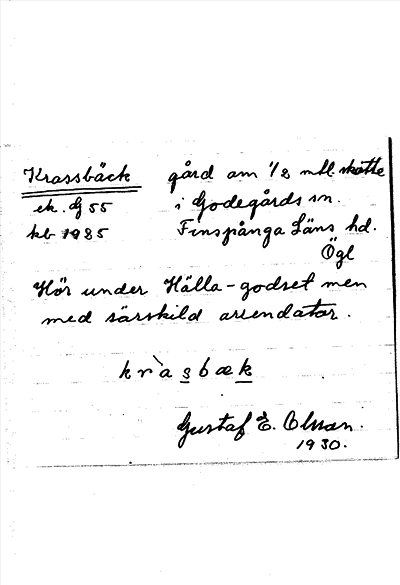 Krassbäck gård om 1/2 mtl. skatte
ek. Dj 55 i Godegårds sn.
kb 1985 Finspånga Läns hd.
Ögl
Hör under Hälla-godset men
med särskild arrendator.
kràsbæk
Gustaf E. Olsson.
1930.